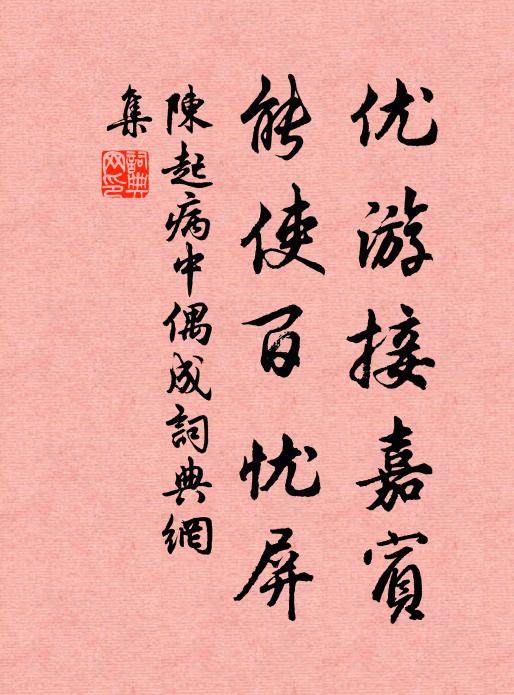 优游接嘉賓
能使百忧屏
陳起病中偶成詞典網
集
詞典网印